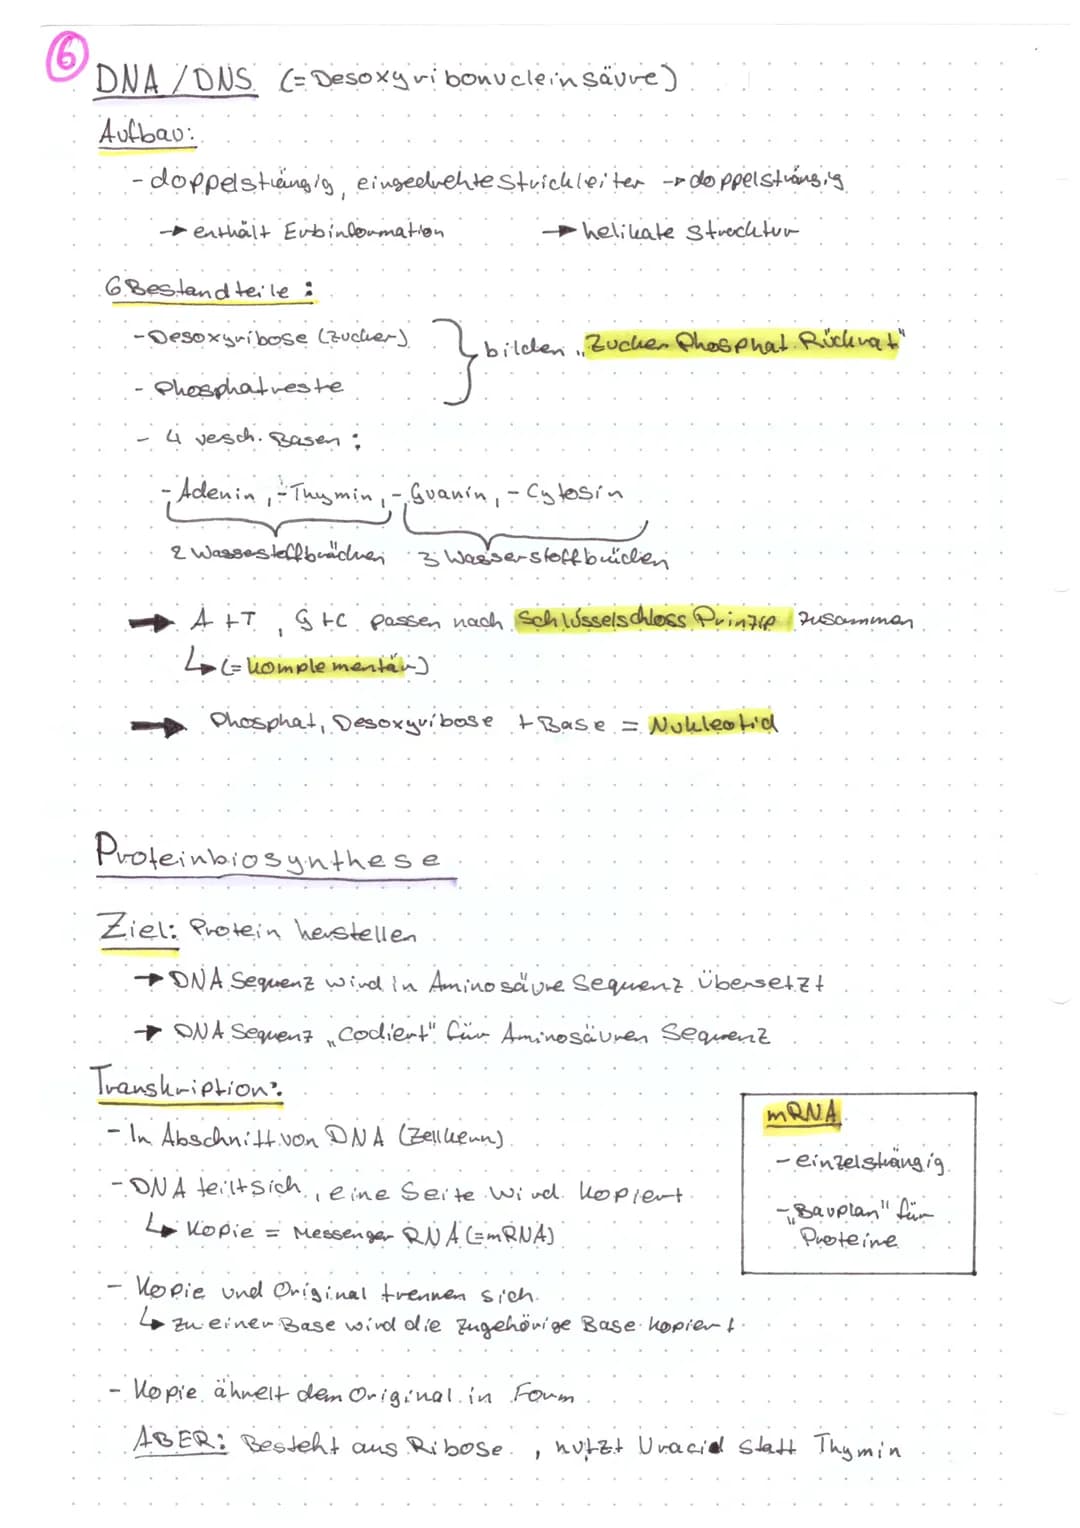 6
DNA / DNS (= Desoxyribonucleinsäure)
Aufbau:
- doppelsträngig, eingedrehte Strickleiter → doppelsträngig
→ enthält Erbinformation → helikate Strucktur
6 Bestandteile :
- Desoxyribose (Zucker)
bilden „Zucker Phosphat Rückrat"
- Phosphatreste
- 4 versch. Basen :
- Adenin, - Thymin, - Guanin, - Cytosin
2 Wasserstoffbrücken 3 Wasserstoffbrücken
→ A + T , G + C passen nach Schlüsselschloss Prinzip zusammen
↳ (= komplementär)
→ Phosphat, Desoxyribose + Base = Nukleotid
Proteinbiosynthese
Ziel: Protein herstellen
→ DNA Sequenz wird in Aminosäure Sequenz übersetzt
→ DNA Sequenz „codiert" für Aminosäuren Sequenz
Transkription:
mRNA
- In Abschnitt von DNA (Zellkern)
- einzelsträngig
- DNA teilt sich, eine Seite wird kopiert
- „Bauplan" für
↳ Kopie = Messenger RNA (=mRNA)
Proteine
- Kopie und Original trennen sich
↳ zu einer Base wird die zugehörige Base kopiert
- Kopie ähnelt dem Original in Form
ABER: Besteht aus Ribose , nutzt Uracid statt Thymin